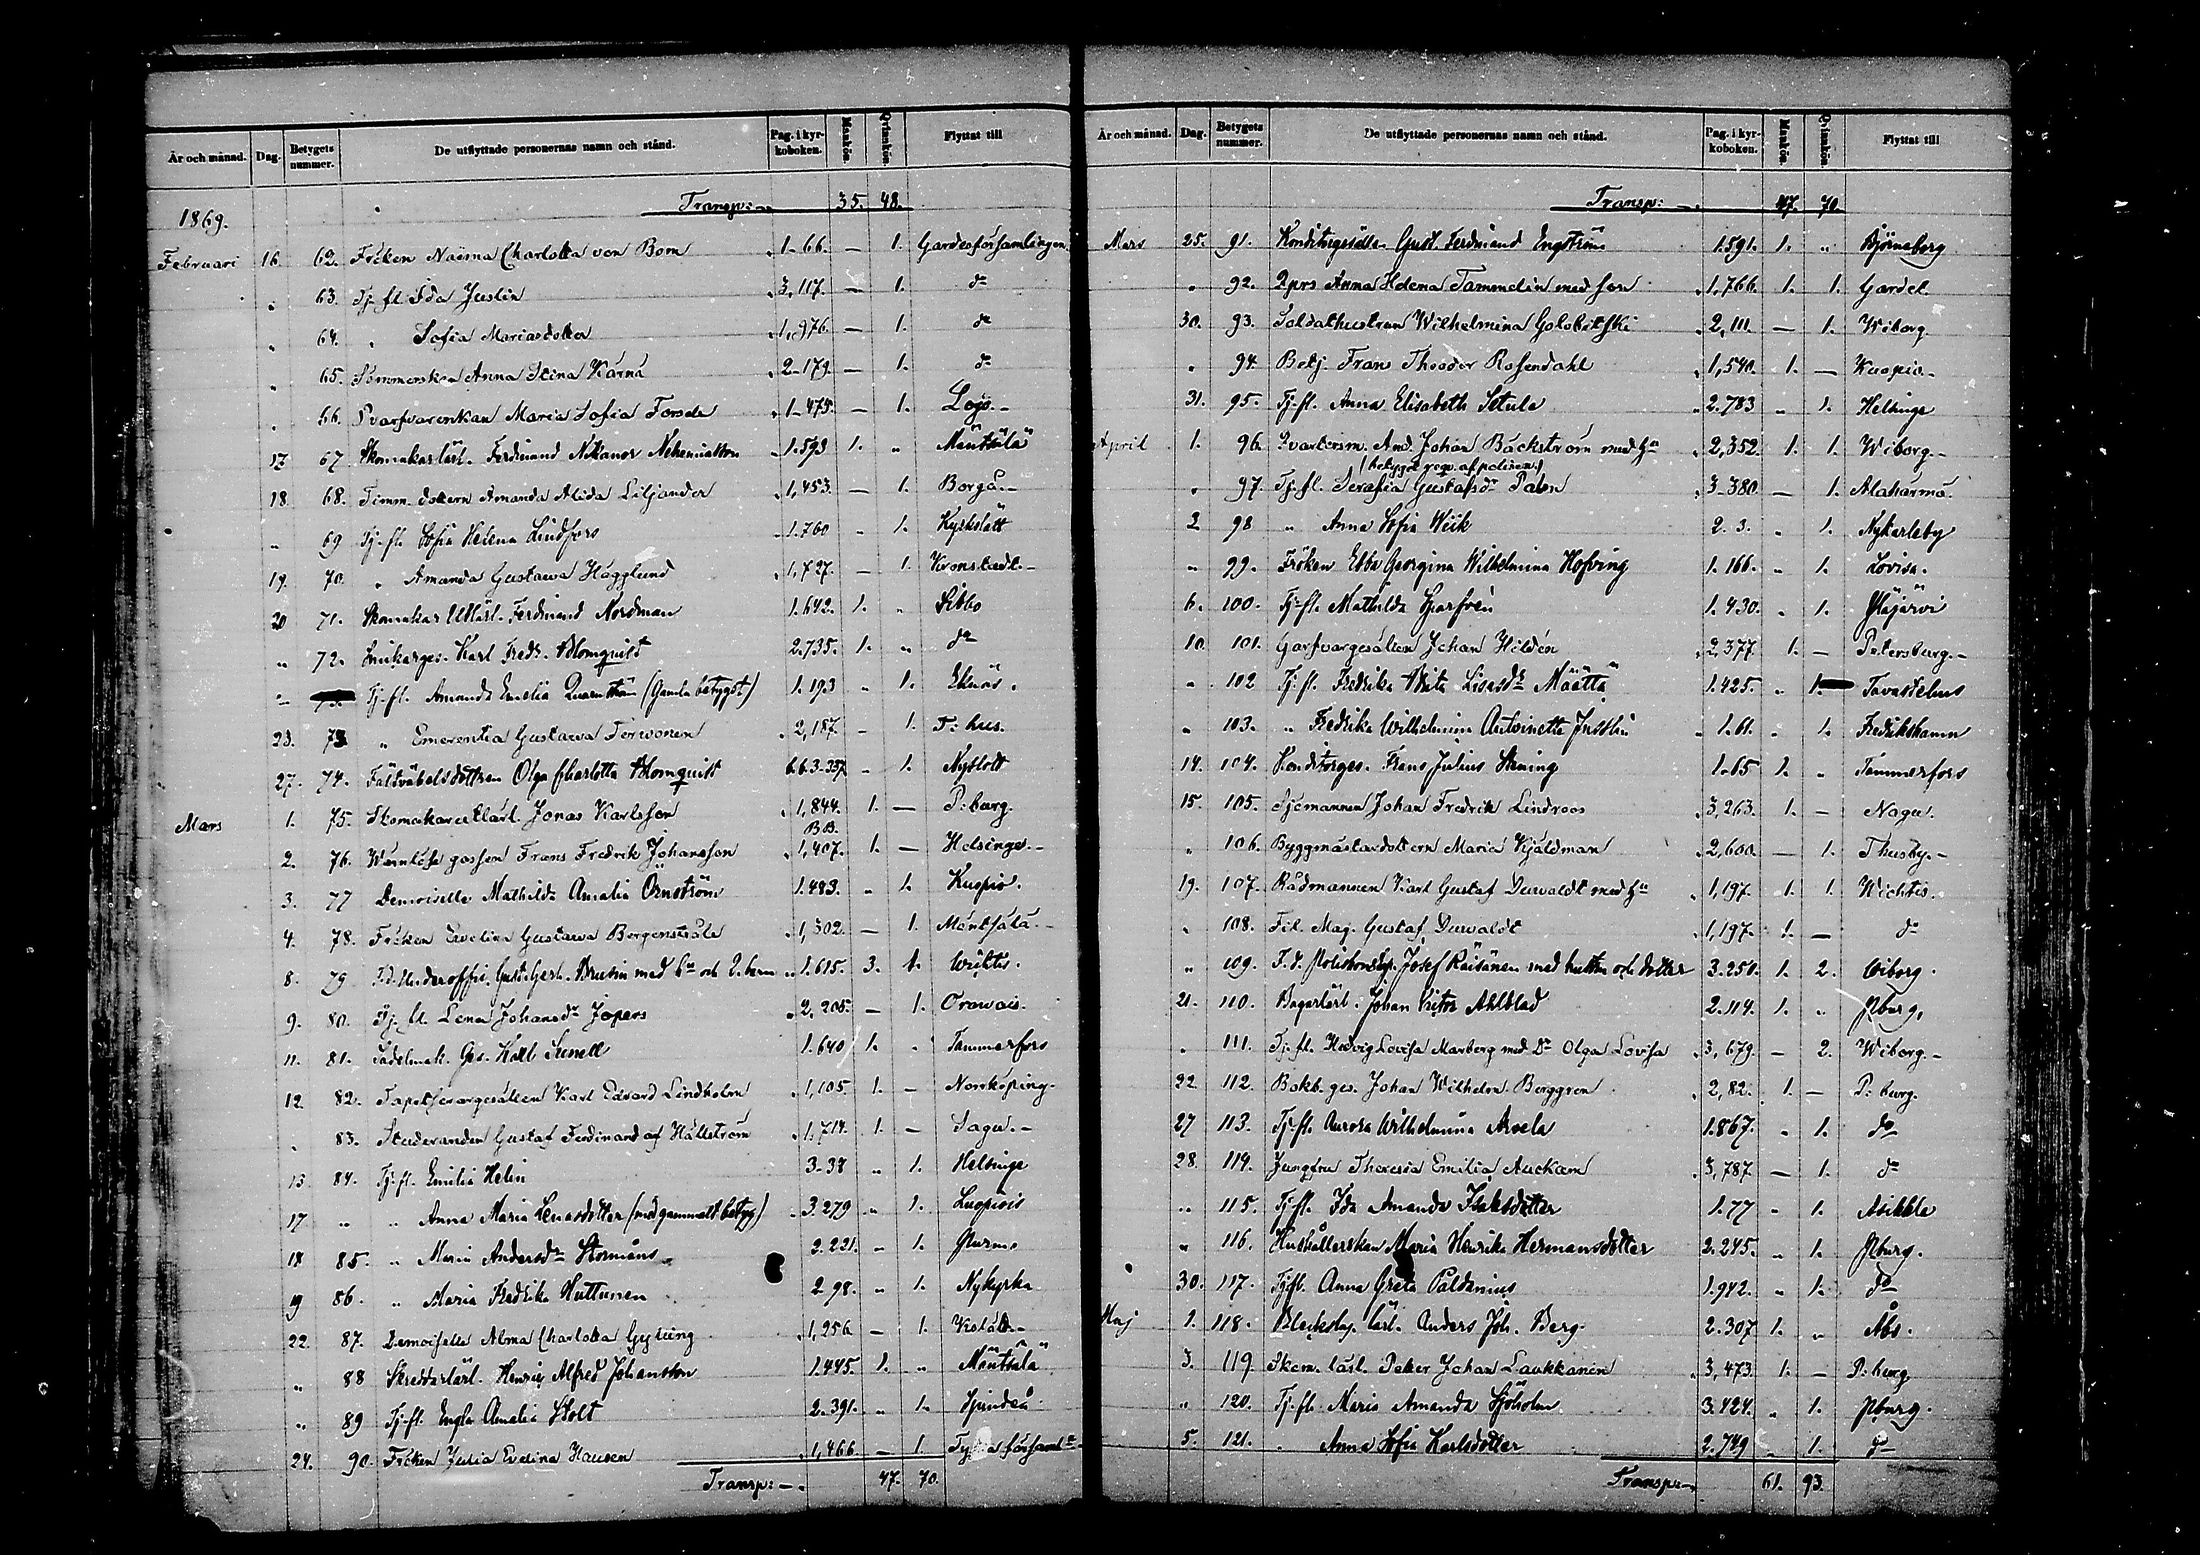 År och månad. Dag. Betygets nummer. De utflyttade personernas namn och stånd. Pag. i kyrkoboken. Mankön. Qvinnkön. Flyttat till
Transp: 35. 48.
1869.
Februari 16 62. Fröken Naëma Charlotta von Born 1-66. — 1. Gardesförsamlingen
„ 63. Tj. fl. Ida Juslin 3,117. — 1. do
„ 64. „ Sofia Mariasdotter 1,976. — 1. do
„ 65. Sömmerskan Anna Stina Kärnä 2-179 — 1. do
„ 66. Svarfvarenkan Maria Sofia Forsde 1-475. — 1. Lojo.
17 67 Skomakarlärl. Ferdinand Nikanor Nehemiasson 1.593 1. „ Mäntsälä
18. 68. Timm. dottern Amanda Alida Liljander 1,453. — 1. Borgå.
„ 69 Tj-fl. Sofia Helena Lindfors 1.760 „ 1. Kyrkslätt
19. 70. „ Amanda Gustawa Hägglund 1,727. — 1. Kronstadt
20 71. Skomakar Utlärl. Ferdinand Nordman 1.642. 1. „ Sibbo
„ 72. Smikarges. Karl Fredr. Blomquist 2.735. 1. „ do
„ Tj-fl. Amanda Emelia (Gamla betyget) 1.193 „ 1. Eknäs.
23. 73 „ Emerentia Gustawa Terwonen 2,187. — 1. T:hus.
27. 74. Fältväbelsdottren Olga Charlotta Blomquist 663-337. „ 1. Nyslott
Mars 1. 75. Skomakareutlärl. Jonas Karlsson 1,844. 1. — P:burg.
BB.
2. 76. Wärnlösa gossen Frans Fredrik Johansson 1,407. 1. — Helsinge.
3. 77 Demoiselle Mathilda Amalia Örnström 1.483. „ 1. Kuopio.
4. 78. Fröken Ewelina Gustawa Bergenstråle 1,302. — 1. Mäntsälä.
8. 79 F.d. Underoffi. Gust. Gerh. Brusin med hu och 2. barn 1.615. 3. 1. Wichtis.
9. 80. Tj. fl. Lena Johansdr Jopers 2,205. — 1. Orawais.
11. 81. Sadelmak. Ges. Karl Sunell 1.640 1. „ Tammerfors
12. 82. Tapetserargesällen Karl Edvard Lindholm 1,105. 1. — Norrköping.
„ 83. Studeranden Gustaf Ferdinand af Hällström 1,714. 1. — Sagu.
13 84. Tj-fl. Emilia Helin 3-38 „ 1. Helsinge
17 „ „ Anna Maria Lenasdotter (med gammalt betyg) 3.279 „ 1. Luopiois
18 85. „ Maria Andersdr Stormåns 2.221. „ 1. Purmo
19 86. „ Maria Fredrika Huttunen 2 98. „ 1. Nykyrka
22. 87. Demoiselle Alma Charlotta Gyllling 1,256 — 1.
„ 88 Skreddarlärl. Henric Alfred Johansson 1.445. 1. „ Mäntsälä
„ 89 Tj-fl. Engla Amalia Stolt 2.391. „ 1. Sjundeå
24. 90. Fröken Julia Evelina Hausen 1,466. — 1. Tyska församl:
Transp: 47. 70.
År och månad. Dag. Betygets nummer. De utflyttade personernas namn och stånd. Pag. i kyrkoboken. Mankön. Qvinnkön. Flyttat till
Transp: 47. 70.
Mars 25. 91. Konditorgesällen Gust. Ferdinand Engström 1.591. 1. „ Björneborg
„ 92. Anna Helena Tammelin med son 1,766. 1. 1. Gardet.
30. 93. Soldathustrun Wilhelmina Golobitski 2,111. — 1. Wiborg.
„ 94. Betj. Frans Theodor Rosendahl 1,540. 1. — Kuopio
31. 95. Tj-fl. Anna Elisabeth Setula 2.783 „ 1. Helsinge
April 1. 96. Qvartersm. And. Johan Bäckström med hu 2,352. 1. 1. Wiborg.
(betyget reqv. af polisen)
„ 97. Tj-fl. Serafia Gustafsdr Palen 3-380 — 1. Alahärmä.
2 98 „ Anna Sofia Wiik 2.3. „ 1. Nykarleby
„ 99. Fröken Ebba Georgina Wilhelmina Hofving 1.166. „ 1. Lovisa.
6. 100. Tj-fl. Mathilda Sparfvén 1.430. „ 1. Ylojärvi
10. 101. Garfvargesällen Johan Hildén 2,377 1. — Petersburg.
„ 102 Tj-fl. Fredrika Brita Lisasdr Määttä 1.425. „ 1. Tavastehus
„ 103. „ Fredrika Wilhelmina Antoinette Jusslin 1.61. „ 1. Fredrikshamn
14. 104. Konditorges. Frans Julius Stening 1.65 1. „ Tammerfors
15. 105. Sjömannen Johan Fredrik Lindroos 3,263. 1. — Nagu.
„ 106. Byggmästardottern Maria Kjäldman 2,600. — 1. Thusby.
19. 107. Rådmannen Karl Gustaf Durvaldt med hu 1,197. 1. 1. Wichtis.
„ 108. Fil. Mag. Gustaf Durvaldt 1,197. 1. — do
„ 109. F.d. Poliskonstap. Josef Räisänen med hustru och dotter 3.250. 1. 2. Wiborg.
21. 110. Bagarlärl. Johan Victor Ahlblad 2.114. 1. „ Pburg.
„ 111. Tj-fl. Hedvig Lovisa Marberg med Dr Olga Lovisa 3,679. — 2. Wiborg.
22 112. Bokb. ges. Johan Wilhelm Berggren 2,82. 1. — P:burg.
27 113. Tj-fl. Aurora Wilhelmina Arvela 1.867. „ 1. do
28. 114. Jungfru Theresia Emilia Auckam 3,787. — 1. do
„ 115. Tj-fl. Ida Amanda Isaksdotter 1.77 „ 1. Asikkala
„ 116. Hushållerskan Maria Henrika Hermansdotter 2.245. „ 1. Pburg.
30. 117. Tj-fl. Anna Greta Paldanius 1.942. „ 1. do
Maj 1. 118. Bleckslag. lärl. Anders Joh. Berg. 2.307 1. „ Åbo.
3. 119 Skom. lärl. Petter Johan Laukkanen 3,473. 1. — P:burg
„ 120. Tj-fl. Maria Amanda Sjöholm 3.424. „ 1. Pburg.
5. 121. „ Anna Sofia Karlsdotter 2.749 „ 1. do
Transp: 61. 93.